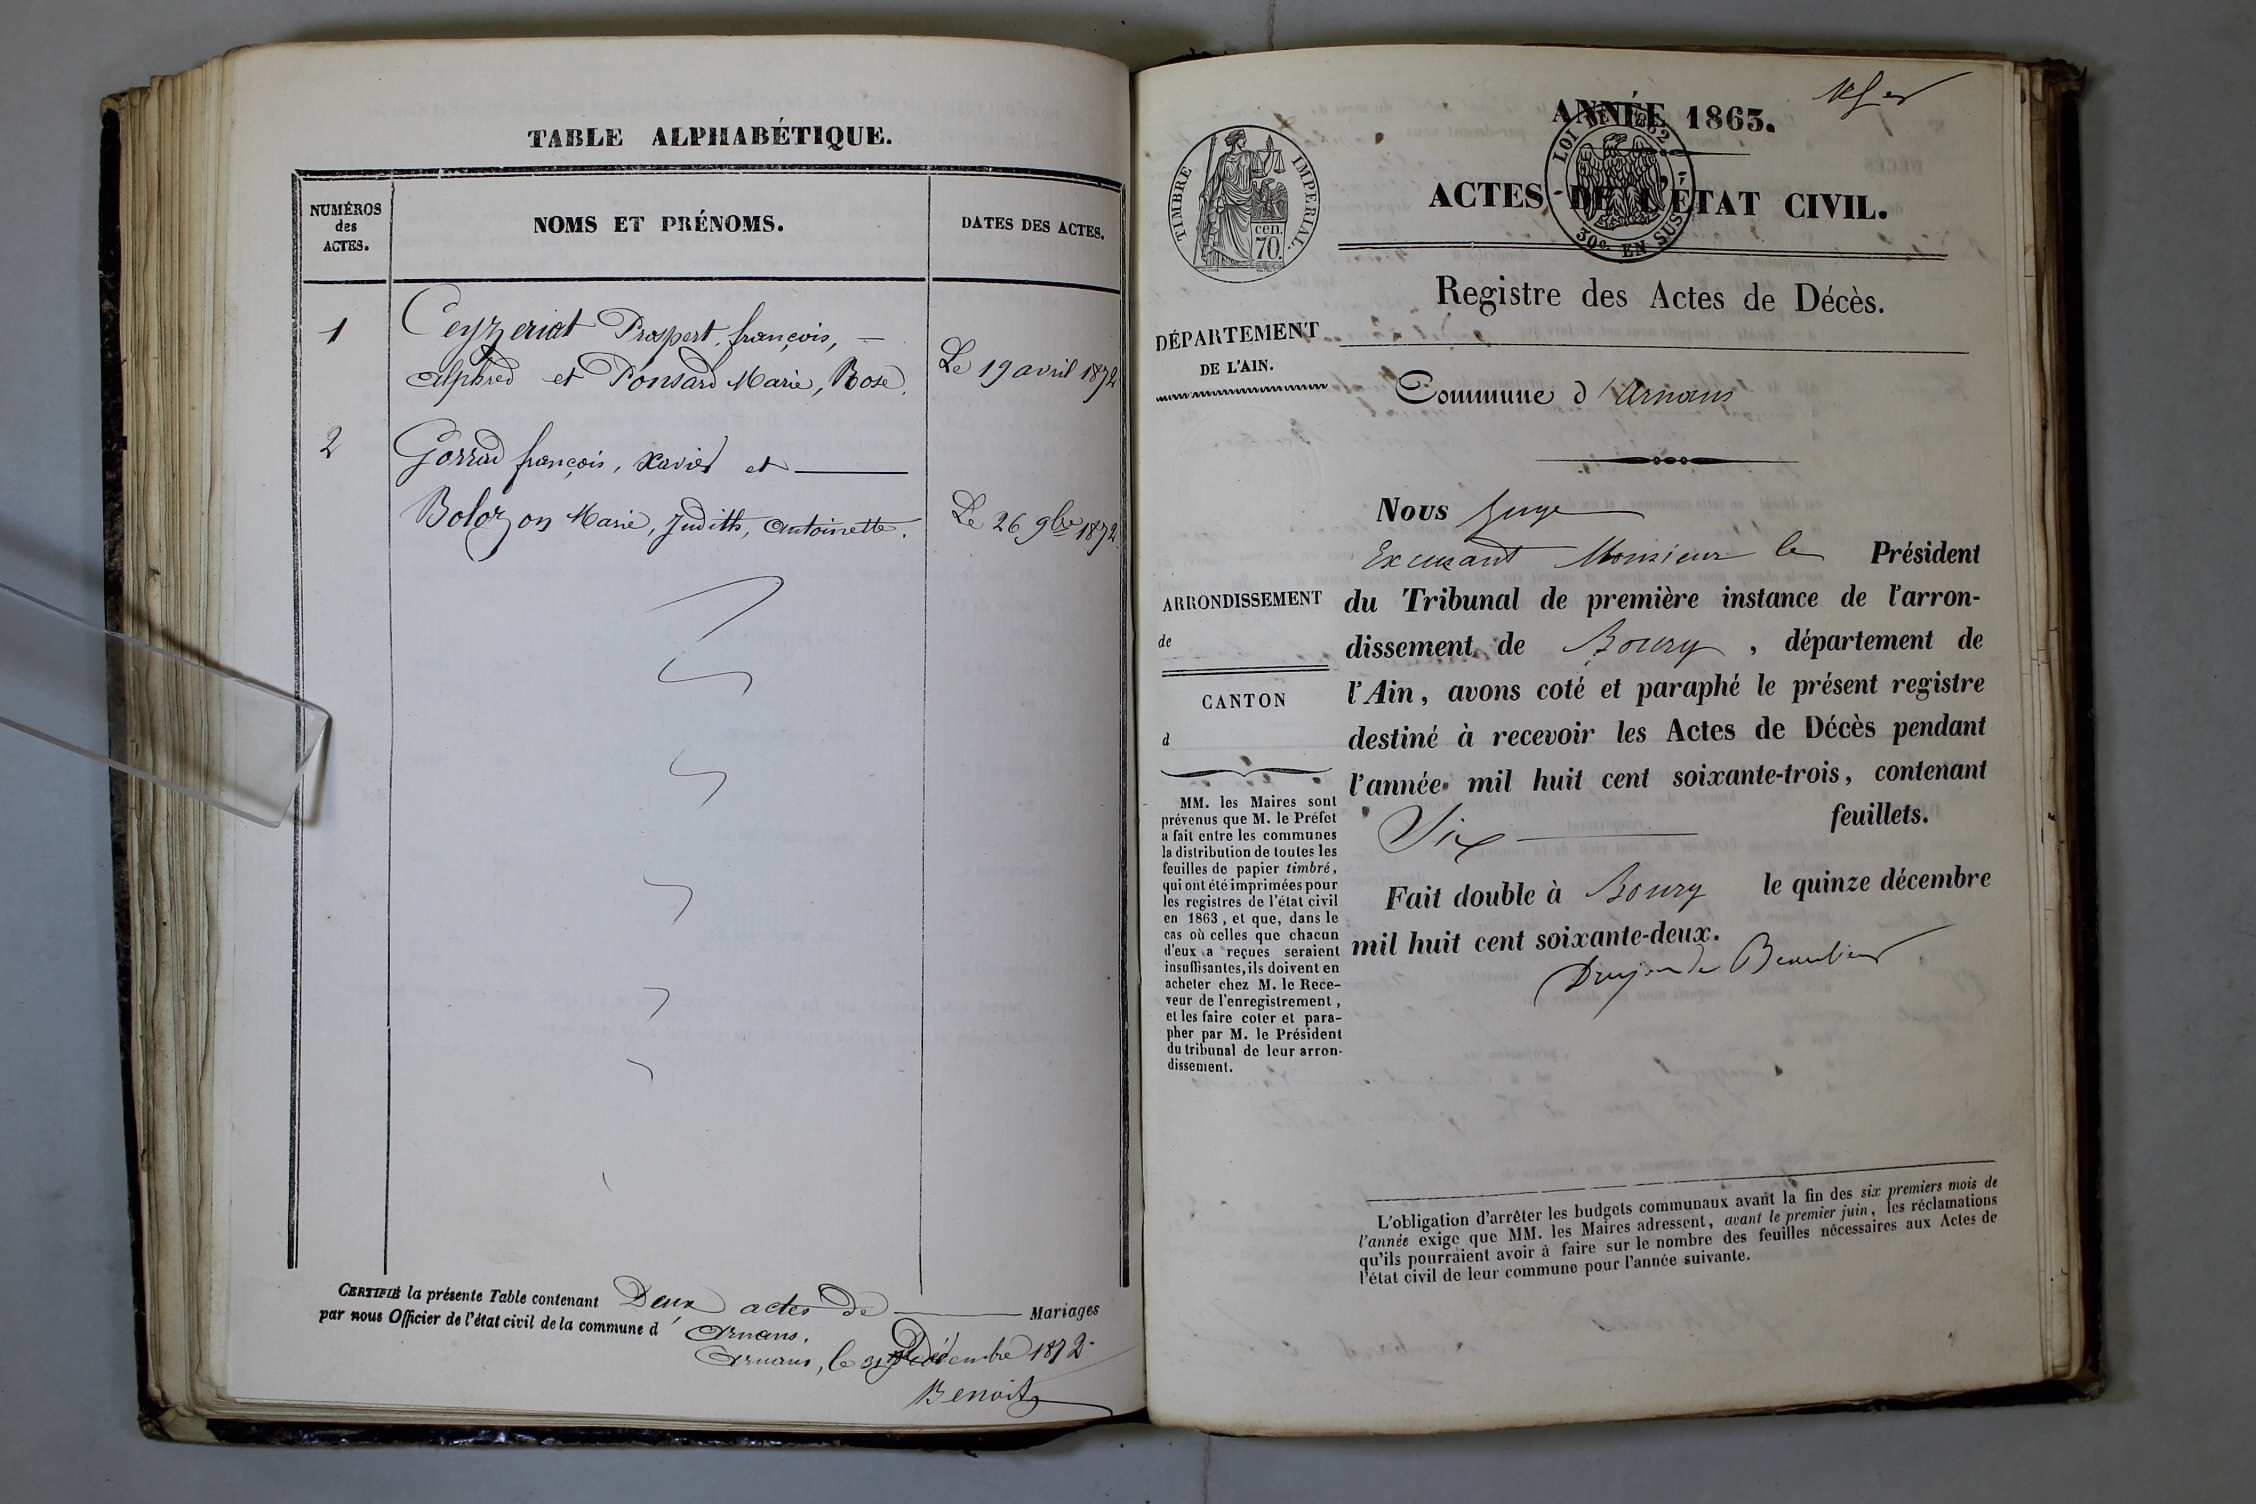 TABLE ALPHABÉTIQUE.
NUMÉROS
des
ACTES.
NOMS ET PRÉNOMS.
DATES DES ACTES.
1
Ceyzeriat Prospert, françois,
alphred et Ponsard Marie, Rose.
Le 19 avril 1872
2
Gorrad françois, Xavier et
Bolozon Marie, Judith, Antoinette.
Le 26 9bre 1872
CERTIFIÉ la présente Table contenant Deux actes de Mariages
par nous Officier de l'état civil de la commune d' Arnans.
Arnans, le 31 Décembre 1872
Benoit
ANNÉE 1863.
LOI DE 1862
30c. EN SUS
TIMBRE IMPERIAL.
cen.
70.
ACTES DE L'ÉTAT CIVIL.
Registre des Actes de Décès.
DÉPARTEMENT
DE L'AIN.
Commune d'Arnans
Nous Juge
Excusant Monsieur le Président
du Tribunal de première instance de l'arron-
dissement de Bourg, département de
l'Ain, avons coté et paraphé le présent registre
destiné à recevoir les Actes de Décès pendant
l'année mil huit cent soixante-trois, contenant
Six feuillets.
Fait double à Bourg le quinze décembre
mil huit cent soixante-deux.
ARRONDISSEMENT
de
CANTON
d
MM. les Maires sont
prévenus que M. le Préfet
a fait entre les communes
la distribution de toutes les
feuilles de papier timbré,
qui ont été imprimées pour
les registres de l'état civil
en 1863, et que, dans le
cas où celles que chacun
d'eux a reçues seraient
insuffisantes, ils doivent en
acheter chez M. le Rece-
veur de l'enregistrement,
et les faire coter et para-
pher par M. le Président
du tribunal de leur arron-
dissement.
L'obligation d'arrêter les budgets communaux avant la fin des six premiers mois de
l'année exige que MM. les Maires adressent, avant le premier juin, les réclamations
qu'ils pourraient avoir à faire sur le nombre des feuilles nécessaires aux Actes de
l'état civil de leur commune pour l'année suivante.